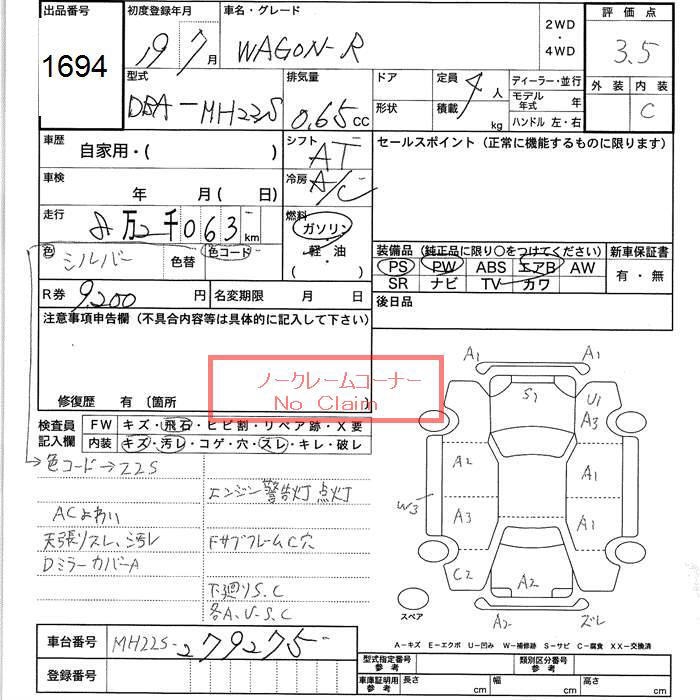 出品番号
1694
初度登録年月
19 7 月
車名・グレード
WAGON-R
2WD
・
4WD
評価点
3.5
外装 内装
C
型式
DBA-MH22S
排気量
0.65 cc
ドア
形状
定員 4 人
積載 kg
ディーラー・並行
モデル年式 年
ハンドル 左・右
車歴
自家用・( )
シフト
AT
セールスポイント(正常に機能するものに限ります)
車検
年 月( 日)
冷房
A/C
走行
8万2千063 km
燃料
ガソリン
・
軽・油
( )
色 シルバー 色替 色コード
装備品(純正品に限り○をつけてください)
PS PW ABS エアB AW
SR ナビ TV カワ
新車保証書
有・無
R券 9,200 円
名変期限 月 日
後日品
注意事項申告欄(不具合内容等は具体的に記入して下さい)
ノークレームコーナー
No Claim
修復歴 有 〔箇所
検査員
記入欄
FW キズ・飛石・ヒビ割・リペア跡・X要
内装 キズ・汚レ・コゲ・穴・スレ・キレ・破レ
→色コード→Z2S
エンジン警告灯点灯
ACよわい
天張りスレ、汚レ
FサブフレームC穴
DミラーカバーA
下廻りS.C
各A、U-S、C
A1 A1
S1 U1
A3
A2 A1
W3
A3 A1
C2 A2
A2 ズレ
スペア
A-キズ E-エクボ U-凹み W-補修跡 S-サビ C-腐食 XX-交換済
車台番号 MH22S-279275
登録番号
型式指定番号
参考
類別区分番号
参考
車庫証明用
参考
長さ cm 幅 cm 高さ cm